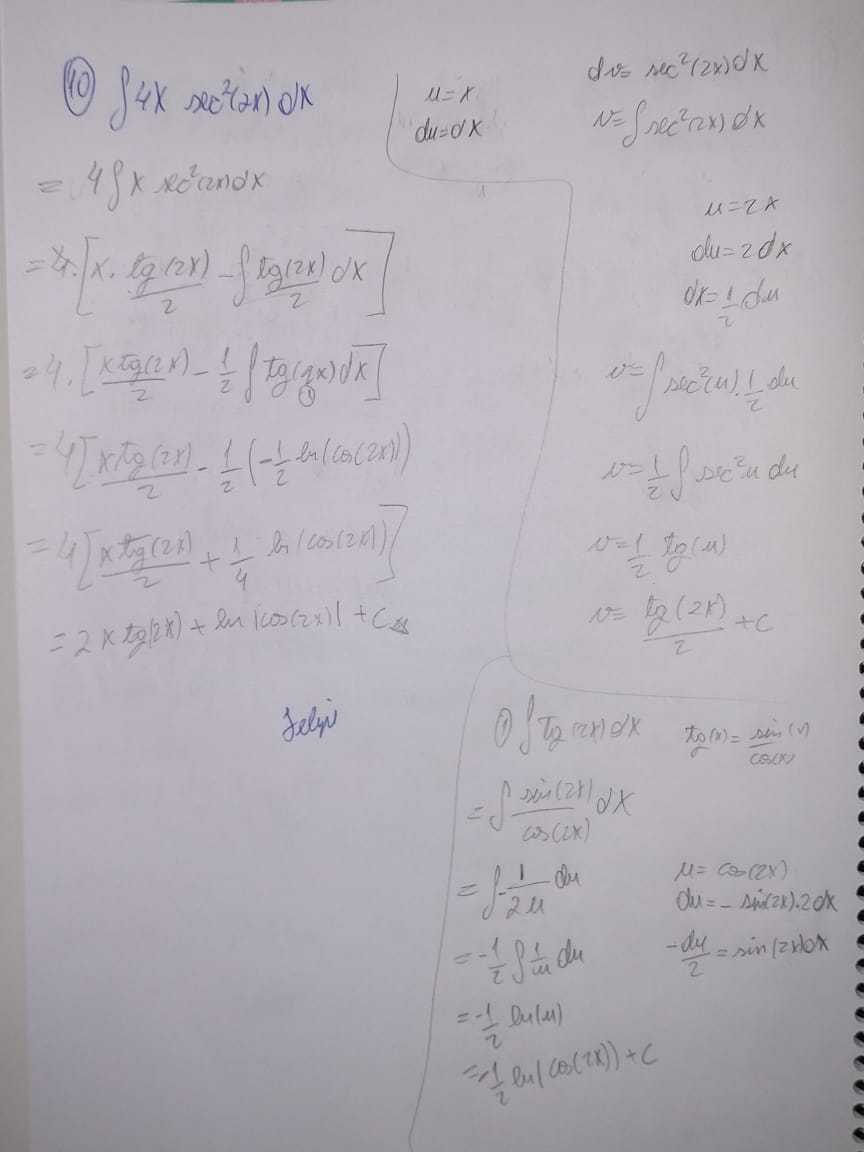 40 ∫4x sec²(2x) dx
= 4∫x sec²(2x) dx
= 4·[x · tg(2x)/2 - ∫tg(2x)/2 dx]
= 4·[x tg(2x)/2 - 1/2 ∫tg(2x) dx]
①
= 4[x tg(2x)/2 - 1/2 (-1/2 ln(cos(2x)))
= 4[x tg(2x)/2 + 1/4 ln(cos(2x))]
= 2x tg(2x) + ln|cos(2x)| + C
u = x
du = dx
dv = sec²(2x) dx
v = ∫sec²(2x) dx
u = 2x
du = 2dx
dx = 1/2 du
v = ∫sec²(u) · 1/2 du
v = 1/2 ∫ sec²u du
v = 1/2 tg(u)
v = tg(2x)/2 + C
① ∫tg(2x) dx
tg(x) = sin(x)/cos(x)
= ∫ sin(2x)/cos(2x) dx
= ∫ -1/2u du
u = cos(2x)
du = -sin(2x)·2dx
= -1/2 ∫ 1/u du
-du/2 = sin(2x)dx
= -1/2 ln(u)
= -1/2 ln(cos(2x)) + C